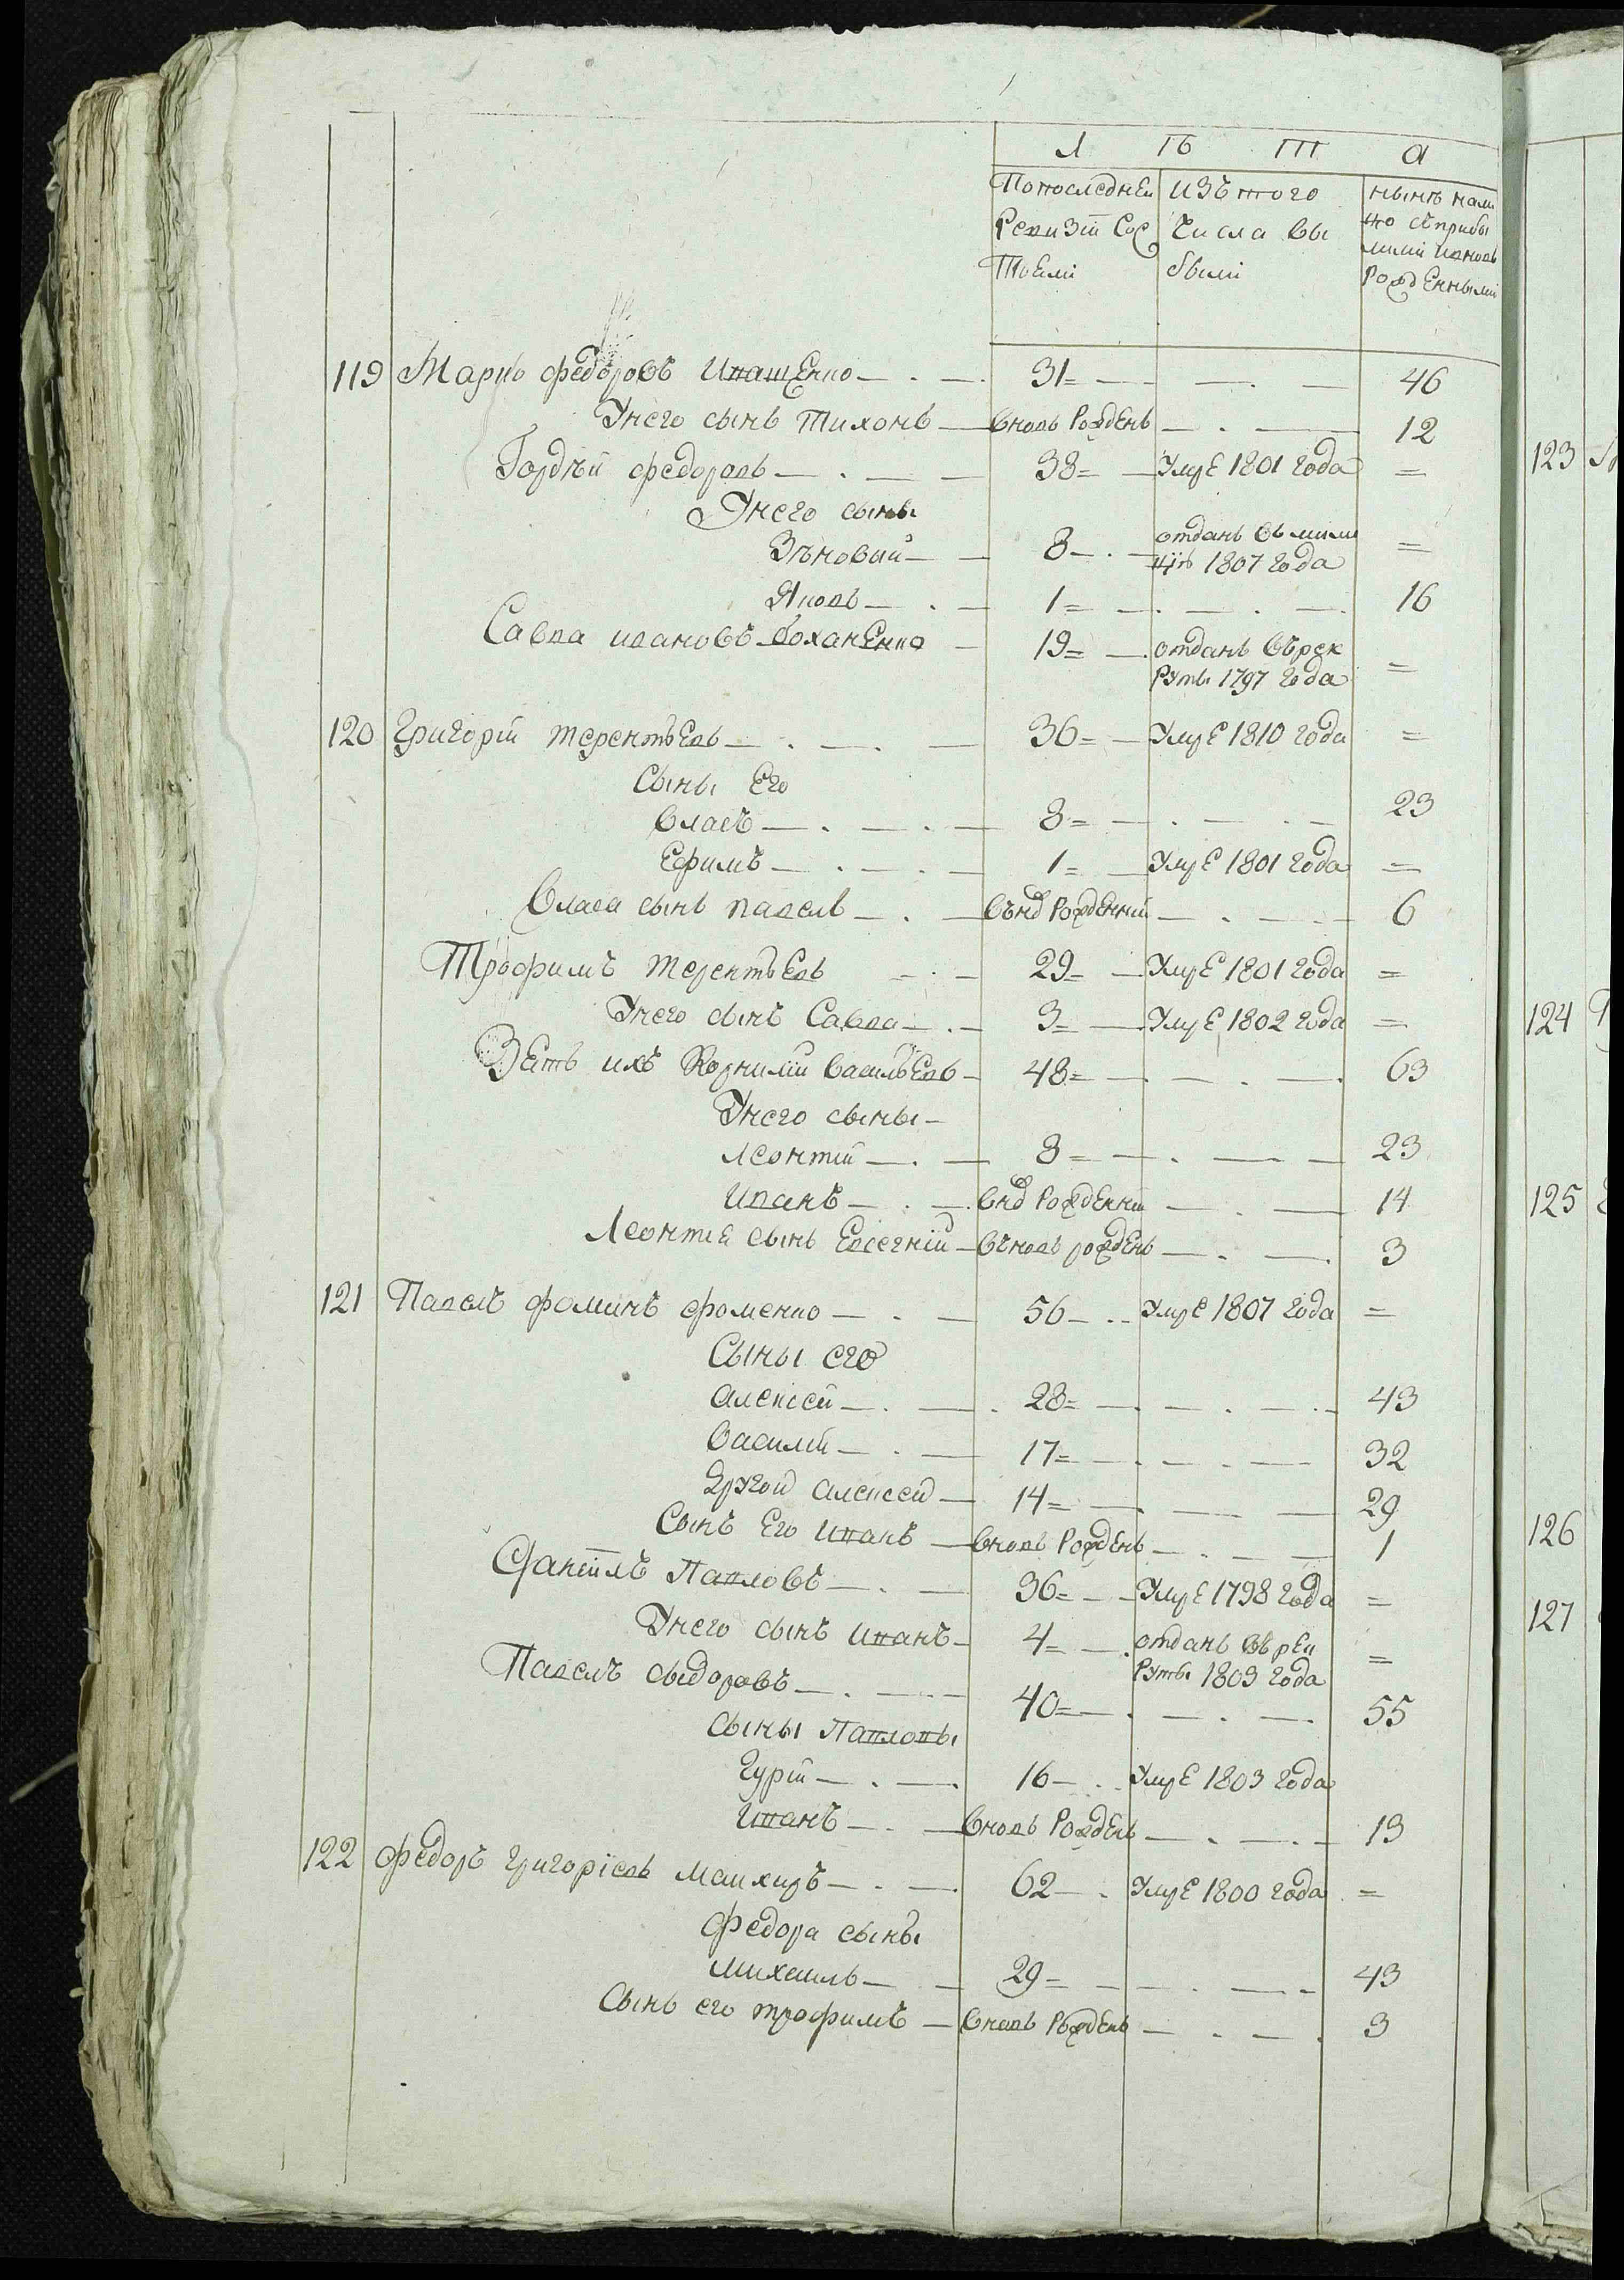 Л Ѣ Т А
По последней Ревизіи Состоялі
Изъ того Числа Выбыли
Нынѣ налицо съ прибылими и вновь Рожденными
119 Маркъ федоровъ Иващенко — . — 31= — — . — 46
У него сынъ Тихонъ — вновь Рожденъ — . — 12
Гордѣй федоровъ — . — — 38= — Умре 1801 года =
У него сыны
Зѣновий — — 8 — . — отданъ въ милицію 1807 года =
Яковъ — . — 1= — . — . — . 16
Савва ивановъ боханЕнко — 19= — отданъ въ рекруты 1797 года =
120 Григорій терентьЕвъ — . — . — 36= — Умре 1810 года =
Сыны Его
Власъ — . — . — 8= — . — . — 23
Ефимъ — . — . — 1= — Умре 1801 года =
Власа сынъ павелъ — . — вънов Рожденній — . — — 6
Трофимъ терентьЕвъ — . — 29= — Умре 1801 года =
У него сынъ Савва — . — 3= — Умре 1802 года =
Зеть ихъ Корнилій васильЕвъ — 48= — . — . — . 63
У него сыны —
леонтій — . — 8= — . — — 23
Иванъ — . — . внов Рожденній — . — 14
Леонтія сынъ Евсегній — въновь рожденъ — . — . 3
121 Павелъ фоминъ фоменко — . — 56 — . . Умре 1807 года =
Сыны его
алексей — . — . 28= — . — . — . — 43
василій — . — 17= — . — . — 32
другой алексей — 14= — — — 29
Сынъ Его иванъ — вновь Рожденъ — . — — 1
Даніилъ Павловъ — . — 36= — — Умре 1798 года =
У него сынъ иванъ — 4= — . отданъ въ рекруты 1803 года =
Павелъ сыдоровъ — . — . — 40= — . — . — . 55
Сыны Павловы
Гурій — . — . 16 — . . Умре 1803 года
иванъ — . — вновь Рожденъ — . — . — 13
122 федоръ григоріевъ малхиръ — . — . 62 — . Умре 1800 года =
федора сыны
михаилъ — — 29= — — . — . — 43
Сынъ его трофимъ — вновь Рожденъ — . — . 3
123
124
125
126
127